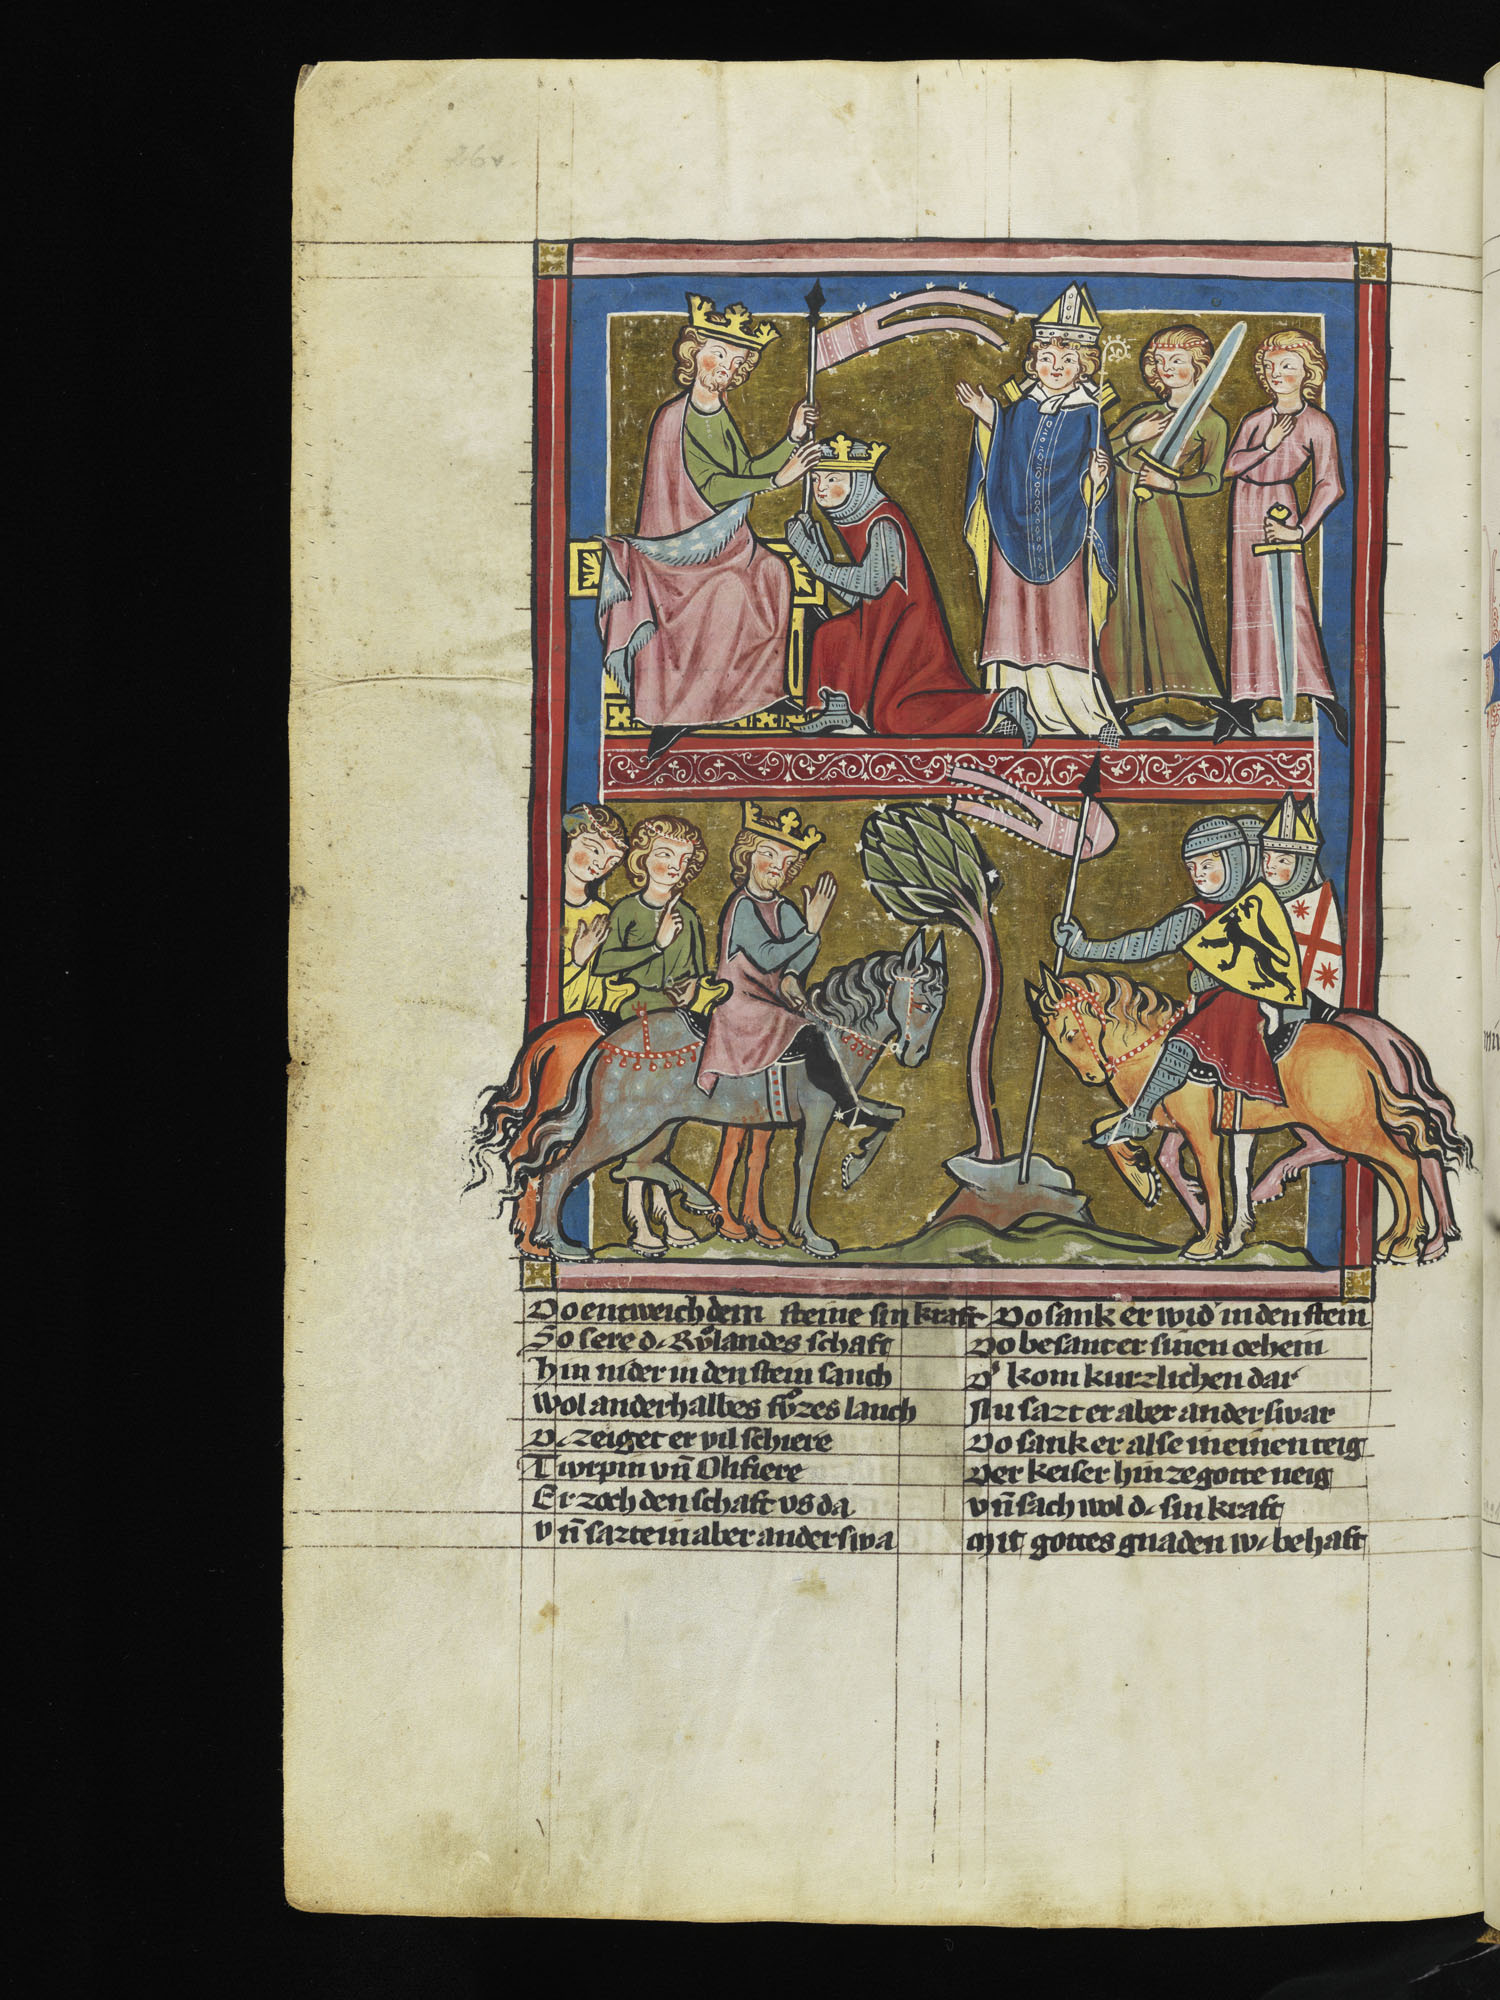 26v
Do entweich dem steine sin kraft
So sere dc Růlandes schaft
Hin nider in den stein sanch
Wol anderhalbes fůzes lanch
Dc zeiget er vil schiere
Turpin vn̄ Olifiere
Er zoch den schaft vs da
Vn̄ sazte in aber anderswa
Do sank er wid' in den stein
Do besanter sinen oehein
D' kom kurzlichen dar
Nu sazt er aber anderswar
Do sank er alse in einen teig
Der keiser hin ze gotte neig
Vn̄ sach wol dc sin kraft
Mit gottes gnaden wc behaft